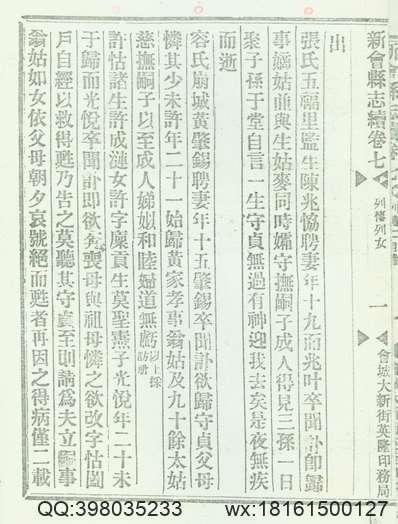 新會縣志續卷七
列傳列女
一
會城大新街英隆印務局
出
張氏五福里監生陳兆協聘妻年十九而兆叶卒聞訃卽歸
事孀姑並與生姑麥同時孀守撫嗣子成人得見三孫一日
聚子孫于堂自言一生守貞無過有神迎我去矣是夜無疾
而逝
容氏崩城黃肇錫聘妻年十五肇錫卒聞訃欲歸守貞父母
憐其少未許年二十一始歸黃家孝事翁姑及九十餘太姑
慈撫嗣子以至成人娣姒和睦婦道無虧以上採訪册
許怙諸生許成漣女許字廩貢生莫聖憲子光悅年二十未
于歸而光悅卒聞訃卽欲奔喪母與祖母憐之欲改字怙閉
戶自經以救得甦乃告之莫聽其守貞至則請為夫立嗣事
翁姑如女依父母朝夕哀號絕而甦者再因之得病僅二載
QQ:398035233 wx:18161500127